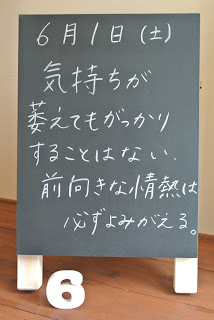 6月1日（土）
気持ちが
萎えてもがっかり
することはない.
前向きな情熱は
必ずよみがえる。
6